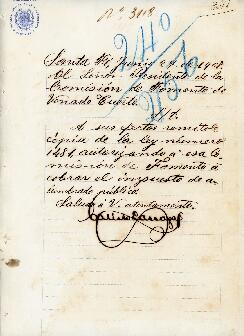 Nº 3418
Santa Fé, Junio 27 de 1908.
Al Señor Presidente de la
Comisión de Fomento de
Venado Tuerto.
A sus efectos remito
cópia de la ley número
1481 autorizando á esa Co
misión de Fomento á
cobrar el impuesto de a-
lumbrado público.
Saludo á V. atentamente.